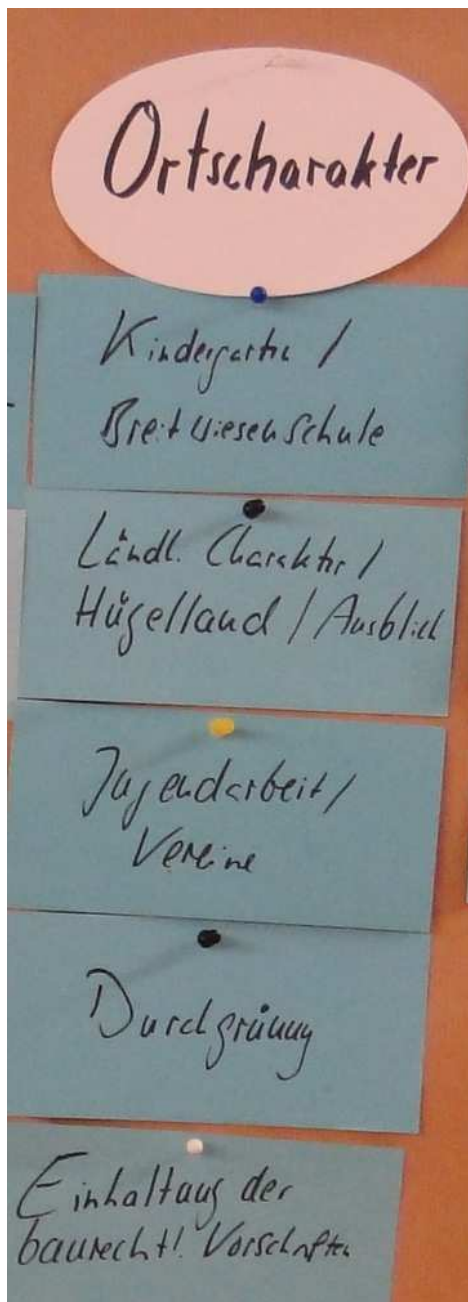 Ortscharakter
Kindergarten /
Breitwiesenschule
Ländl. Charakter /
Hügelland / Ausblick
Jugendarbeit /
Vereine
Durchgrünung
Einhaltung der
baurechtl. Vorschriften